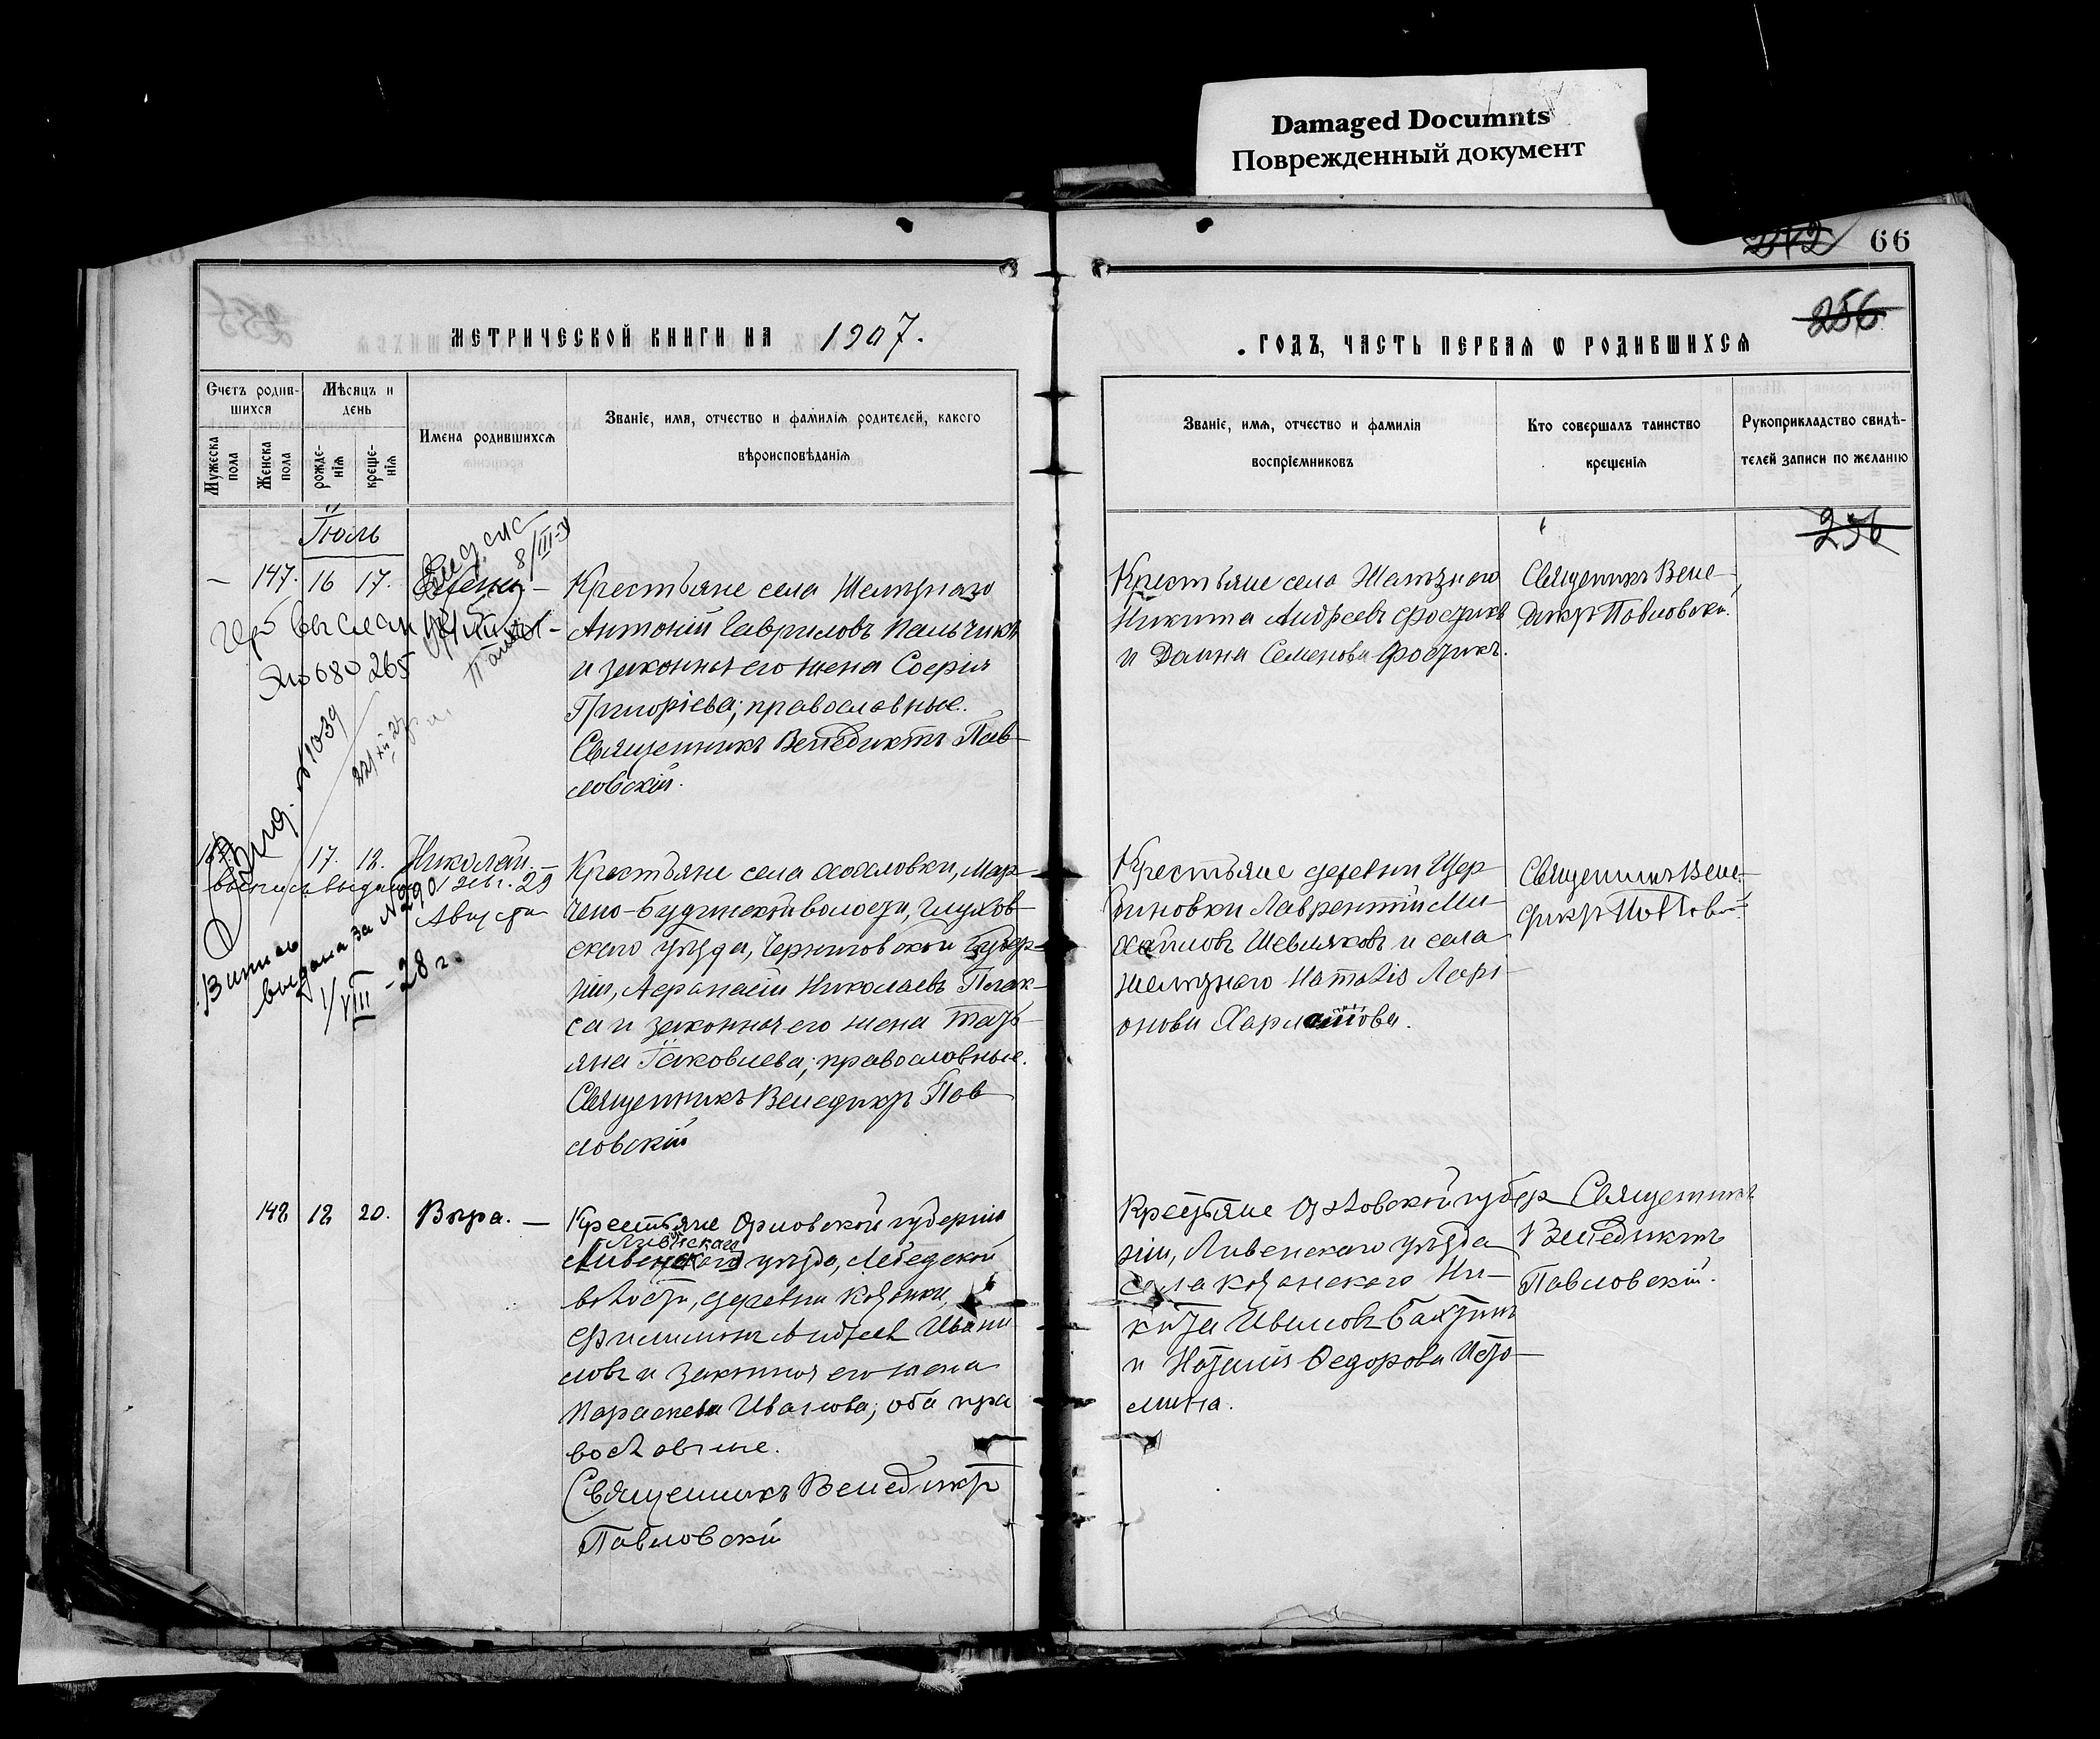 Damaged Documnts
Поврежденный документ
242 66
256
МЕТРИЧЕСКОЙ КНИГИ НА 1907.
ГОДЪ, ЧАСТЬ ПЕРВАЯ Ѡ РОДИВШИХСЯ
Счетъ родив-
шихся
Мѣсяцъ и
день
Мужеска
пола
Женска
пола
рожде-
нія
креще-
нія
Имена родившихся
Званіе, имя, отчество и фамилія родителей, какого
вѣроисповѣданія
Званіе, имя, отчество и фамилія
воспріемниковъ
Кто совершалъ таинство
крещенія
Рукоприкладство свидѣ-
телей записи по желанію
256
Іюль
— 147. 16 17.
Крестьяне села Желѣзнаго
Антоній Гавриловъ Пальчикъ
и законная его жена Софія
Григоріева; православные.
Священникъ Венедиктъ Пав-
ловскій.
Крестьяне села Желѣзнаго
Никита Андреевъ
и Домна Семенова
Священникъ Вене-
диктъ Павловскій.
выслан
№ 680 265
№ 1039
17. 18. Николай. —
Августа
выдана за № 290
1/VIII - 28 г.
Крестьяне села Хохловки, Мар-
чено-Будинской волости, Глухов-
скаго уѣзда, Черниговской губер-
ніи, Аѳанасій Николаевъ Плак-
са и законная его жена Тать-
яна Іаковлева; православные.
Священникъ Венедиктъ Пав-
ловскій
Крестьяне деревни Щер-
биновки Лаврентій Ми-
хайловъ Шевляковъ и села
Желѣзнаго Наталія Лари-
онова
Священникъ Вене-
диктъ Павловскій
148 18 20. Вѣра. —
Крестьяне Орловской губерніи
Ливенскаго
уѣзда, Лебедской
волости, деревни
Филимонъ Андреевъ
ловъ и законная его жена
Параскева Иванова; оба пра
вославные.
Священникъ Венедиктъ
Павловскій
Крестьяне Орловской губер-
ніи, Ливенскаго уѣзда
села Казанскаго Ни-
кита Ивановъ
и Наталія Ѳедорова Исто-
мина.
Священникъ
Венедиктъ
Павловскій.